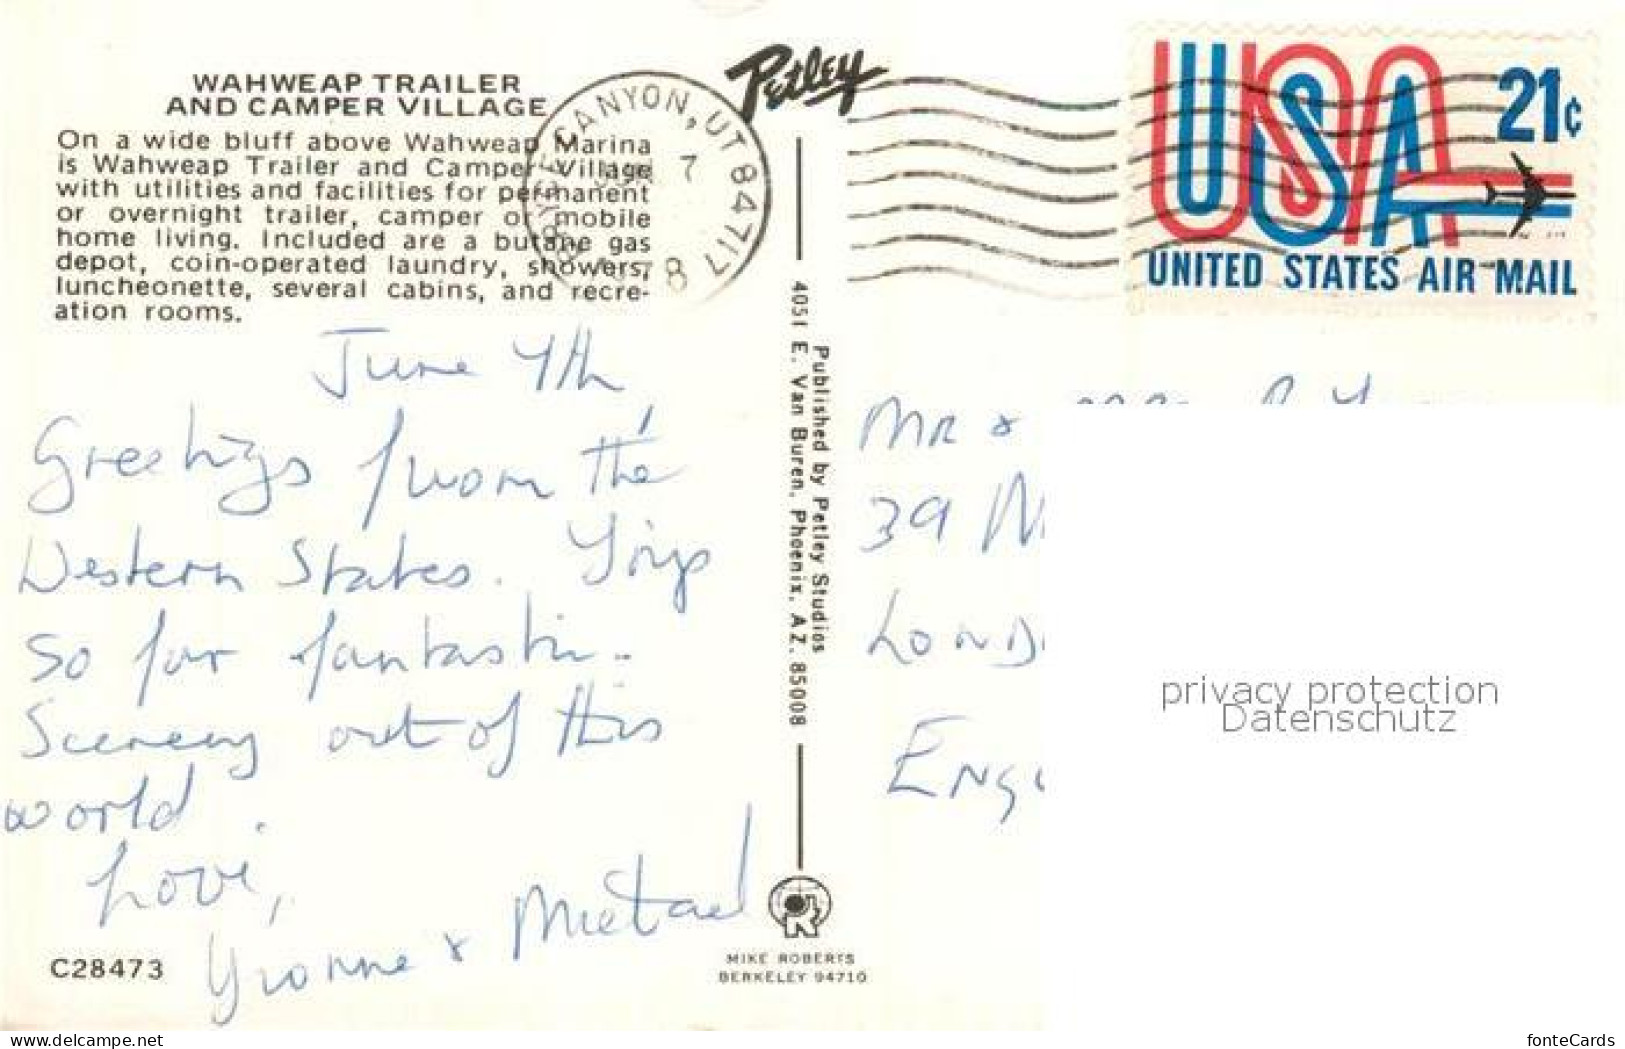 WAHWEAP TRAILER
AND CAMPER VILLAGE
On a wide bluff above Wahweap Marina
is Wahweap Trailer and Camper Village
with utilities and facilities for permanent
or overnight trailer, camper or mobile
home living. Included are a butane gas
depot, coin-operated laundry, showers,
luncheonette, several cabins, and recre-
ation rooms.
June 4th
Greetings from the
Western States. Trip
so far fantastic.
Scenery out of this
world.
Love,
Yvonne & Michael
C28473
Petley
CANYON, UT 84717
7
Published by Petley Studios
4051 E. Van Buren, Phoenix, AZ. 85008
MIKE ROBERTS
BERKELEY 94710
USA
21c
UNITED STATES AIR MAIL
MR &
39
privacy protection
Datenschutz
www.delcampe.net
fonteCards